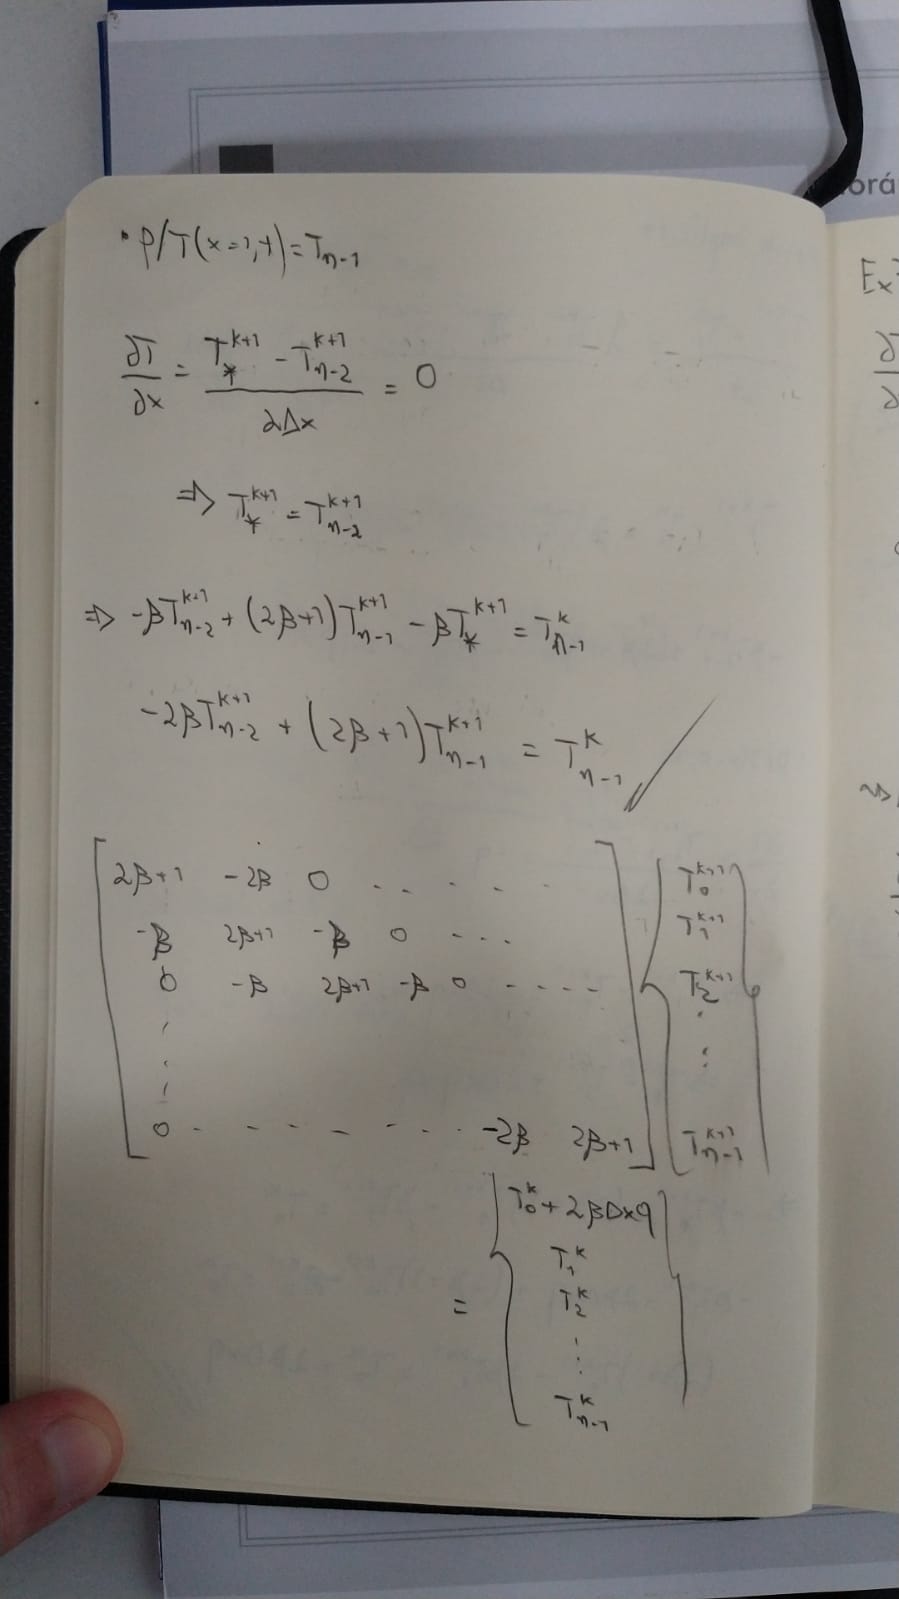 orá
• P/T(x=1,t)=Tₙ₋₁
∂T/∂x = (T*^{k+1} - T_{n-2}^{k+1})/(2Δx) = 0
⇒ T*^{k+1} = T_{n-2}^{k+1}
⇒ -βT_{n-2}^{k+1} + (2β+1)T_{n-1}^{k+1} - βT*^{k+1} = T_{n-1}^{k}
-2βT_{n-2}^{k+1} + (2β+1)T_{n-1}^{k+1} = T_{n-1}^{k}
2β+1 -2β 0 . . . . . T_0^{k+1}
-β 2β+1 -β 0 - - . . T_1^{k+1}
0 -β 2β+1 -β 0 - - - - - T_2^{k+1}
0 - - - - - - - -2β 2β+1 T_{n-1}^{k+1}
= T_0^{k} + 2βΔxq
T_1^{k}
T_2^{k}
T_{n-1}^{k}
Ex